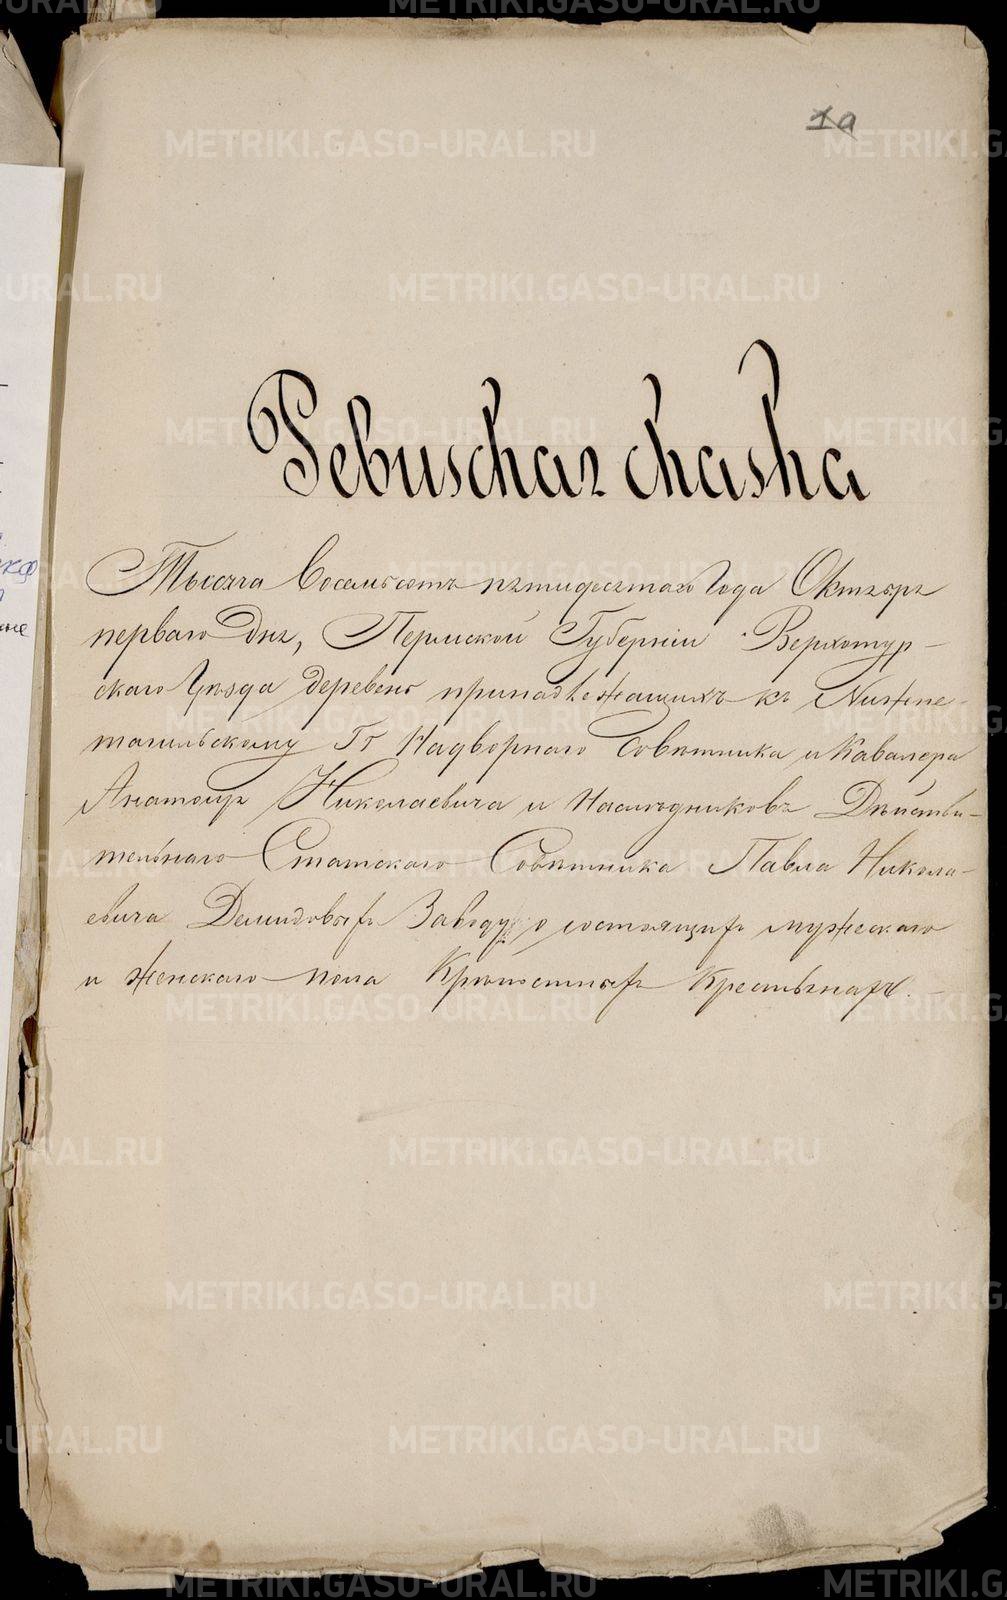 1а
Ревизская сказка
Тысяча Восемьсот пятидесятаго Года Октября
перваго Дня, Пермской Губерніи Верхотур-
скаго Уѣзда деревень принадлежащихъ къ Нижне-
тагильскому Гг Надворнаго Совѣтника и Кавалера
Анатолія Николаевича и Наслѣдниковъ Дѣйстви-
тельнаго Статскаго Совѣтника Павла Никола-
евича Демидовыхъ Заводу, о состоящихъ мужескаго
и женскаго пола Крѣпостныхъ Крестьянахъ.
METRIKI.GASO-URAL.RU